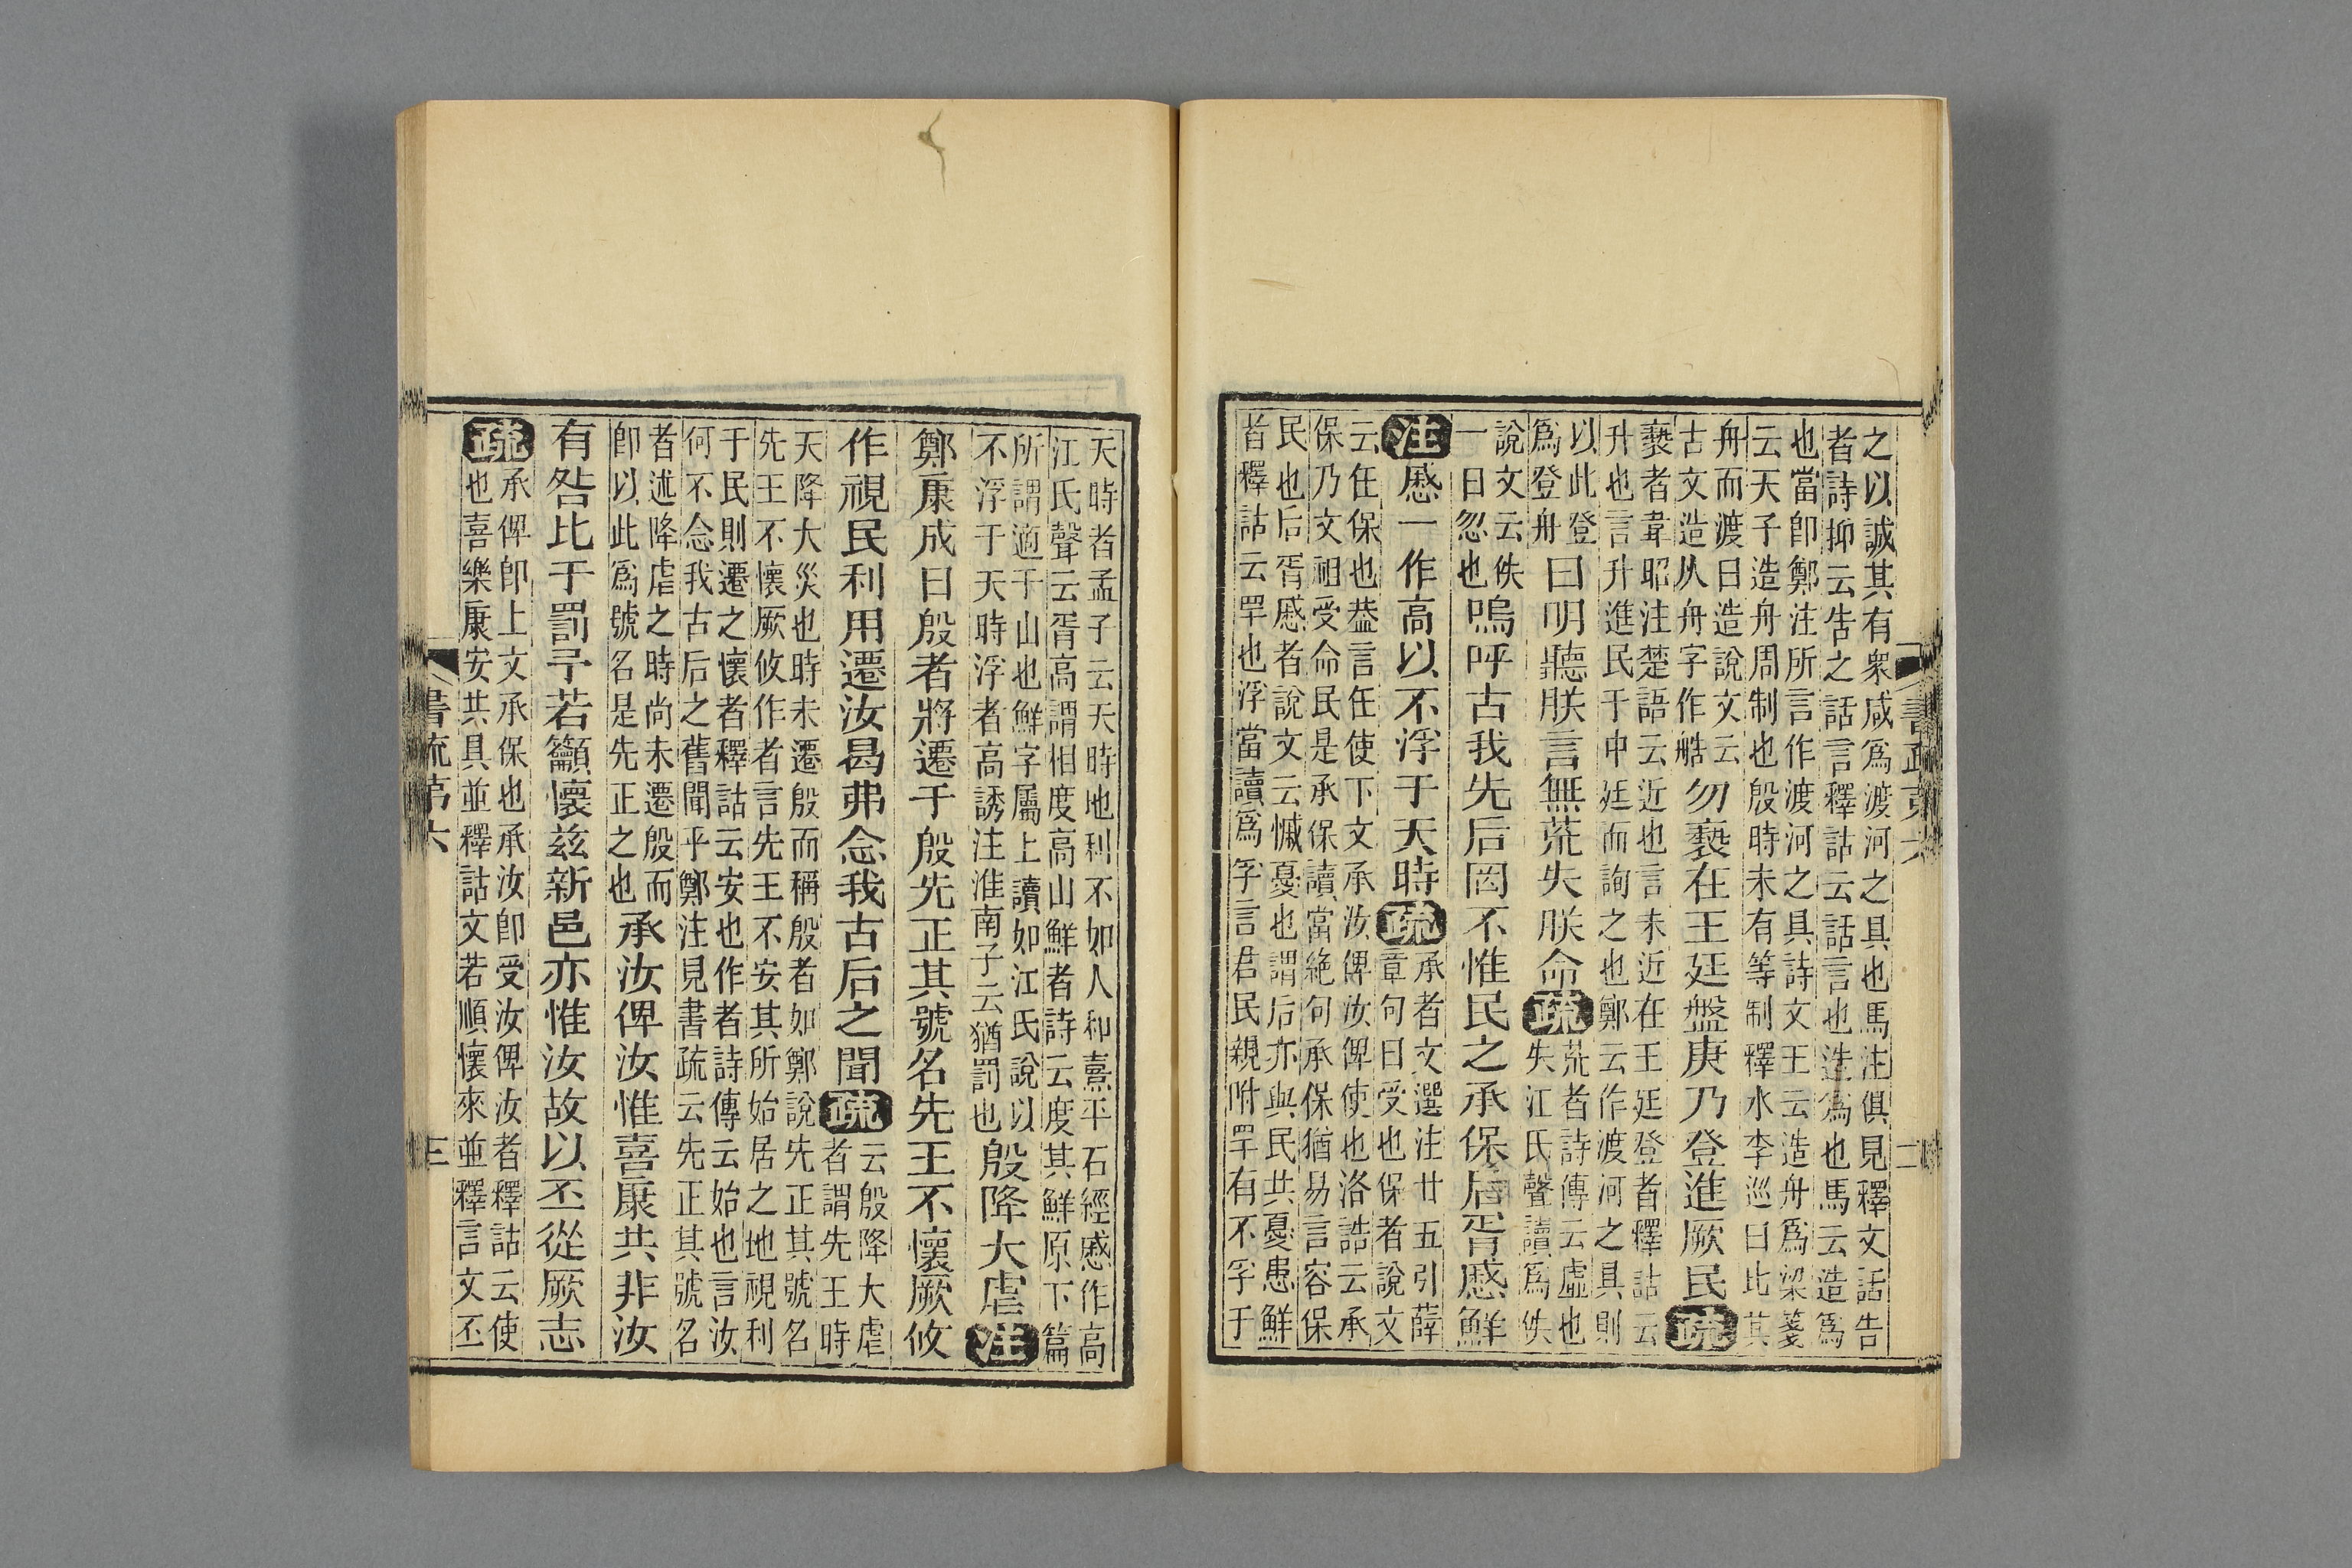 之以誠其有衆咸爲渡河之具也馬注俱見釋文話告
者詩抑云告之話言釋詁云話言也造爲也馬云造爲
也當卽鄭注所言作渡河之具詩文王云造舟爲梁箋
云天子造舟周制也殷時未有等制釋水李巡曰比其
舟而渡曰造說文云
古文造从舟字作艁
勿褻在王廷盤庚乃登進厥民疏
褻者韋昭注楚語云近也言未近在王廷登者釋詁云
升也言升進民于中廷而詢之也鄭云作渡河之具則
以此登
爲登舟
曰明聽朕言無荒失朕命疏
荒者詩傳云虛也
失江氏聲讀爲佚
說文云佚
一曰忽也
嗚呼古我先后罔不惟民之承保后胥慼鮮
注慼一作高以不浮于天時疏
承者文選注廿五引薛
章句曰受也保者說文
云任保也葢言任使下文承汝俾汝俾使也洛誥云承
保乃文祖受命民是承保讀當絶句承保猶易言容保
民也后胥慼者說文云慽憂也謂后亦與民共憂患鮮
者釋詁云罕也浮當讀爲孚言君民親附罕有不孚于
書疏第六
二
天時者孟子云天時地利不如人和熹平石經慼作高
江氏聲云胥高謂相度高山鮮者詩云度其鮮原下篇
所謂適于山也鮮字屬上讀如江氏說以
不浮于天時浮者高誘注淮南子云猶罰也
殷降大虐注
鄭康成曰殷者將遷于殷先正其號名先王不懷厥攸
作視民利用遷汝曷弗念我古后之聞疏
云殷降大虐
者謂先王時
天降大災也時未遷殷而稱殷者如鄭說先正其號名
先王不懷厥攸作者言先王不安其所始居之地視利
于民則遷之懷者釋詁云安也作者詩傳云始也言汝
何不念我古后之舊聞乎鄭注見書疏云先正其號名
者述降虐之時尚未遷殷而
卽以此爲號名是先正之也
承汝俾汝惟喜康共非汝
有咎比于罰予若籲懷兹新邑亦惟汝故以丕從厥志
疏
承俾卽上文承保也承汝卽受汝俾汝者釋詁云使
也喜樂康安共具並釋詁文若順懷來並釋言文丕
書疏第六
三